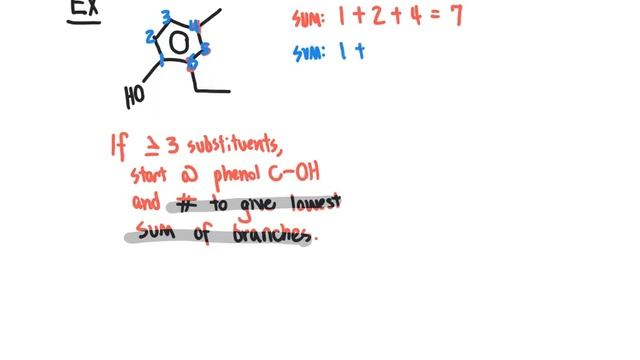 EX
SUM: 1 + 2 + 4 = 7
SUM: 1 +
3
2
4
5
1
6
HO
If ≥ 3 substituents,
start @ phenol C-OH
and # to give lowest
sum of branches.